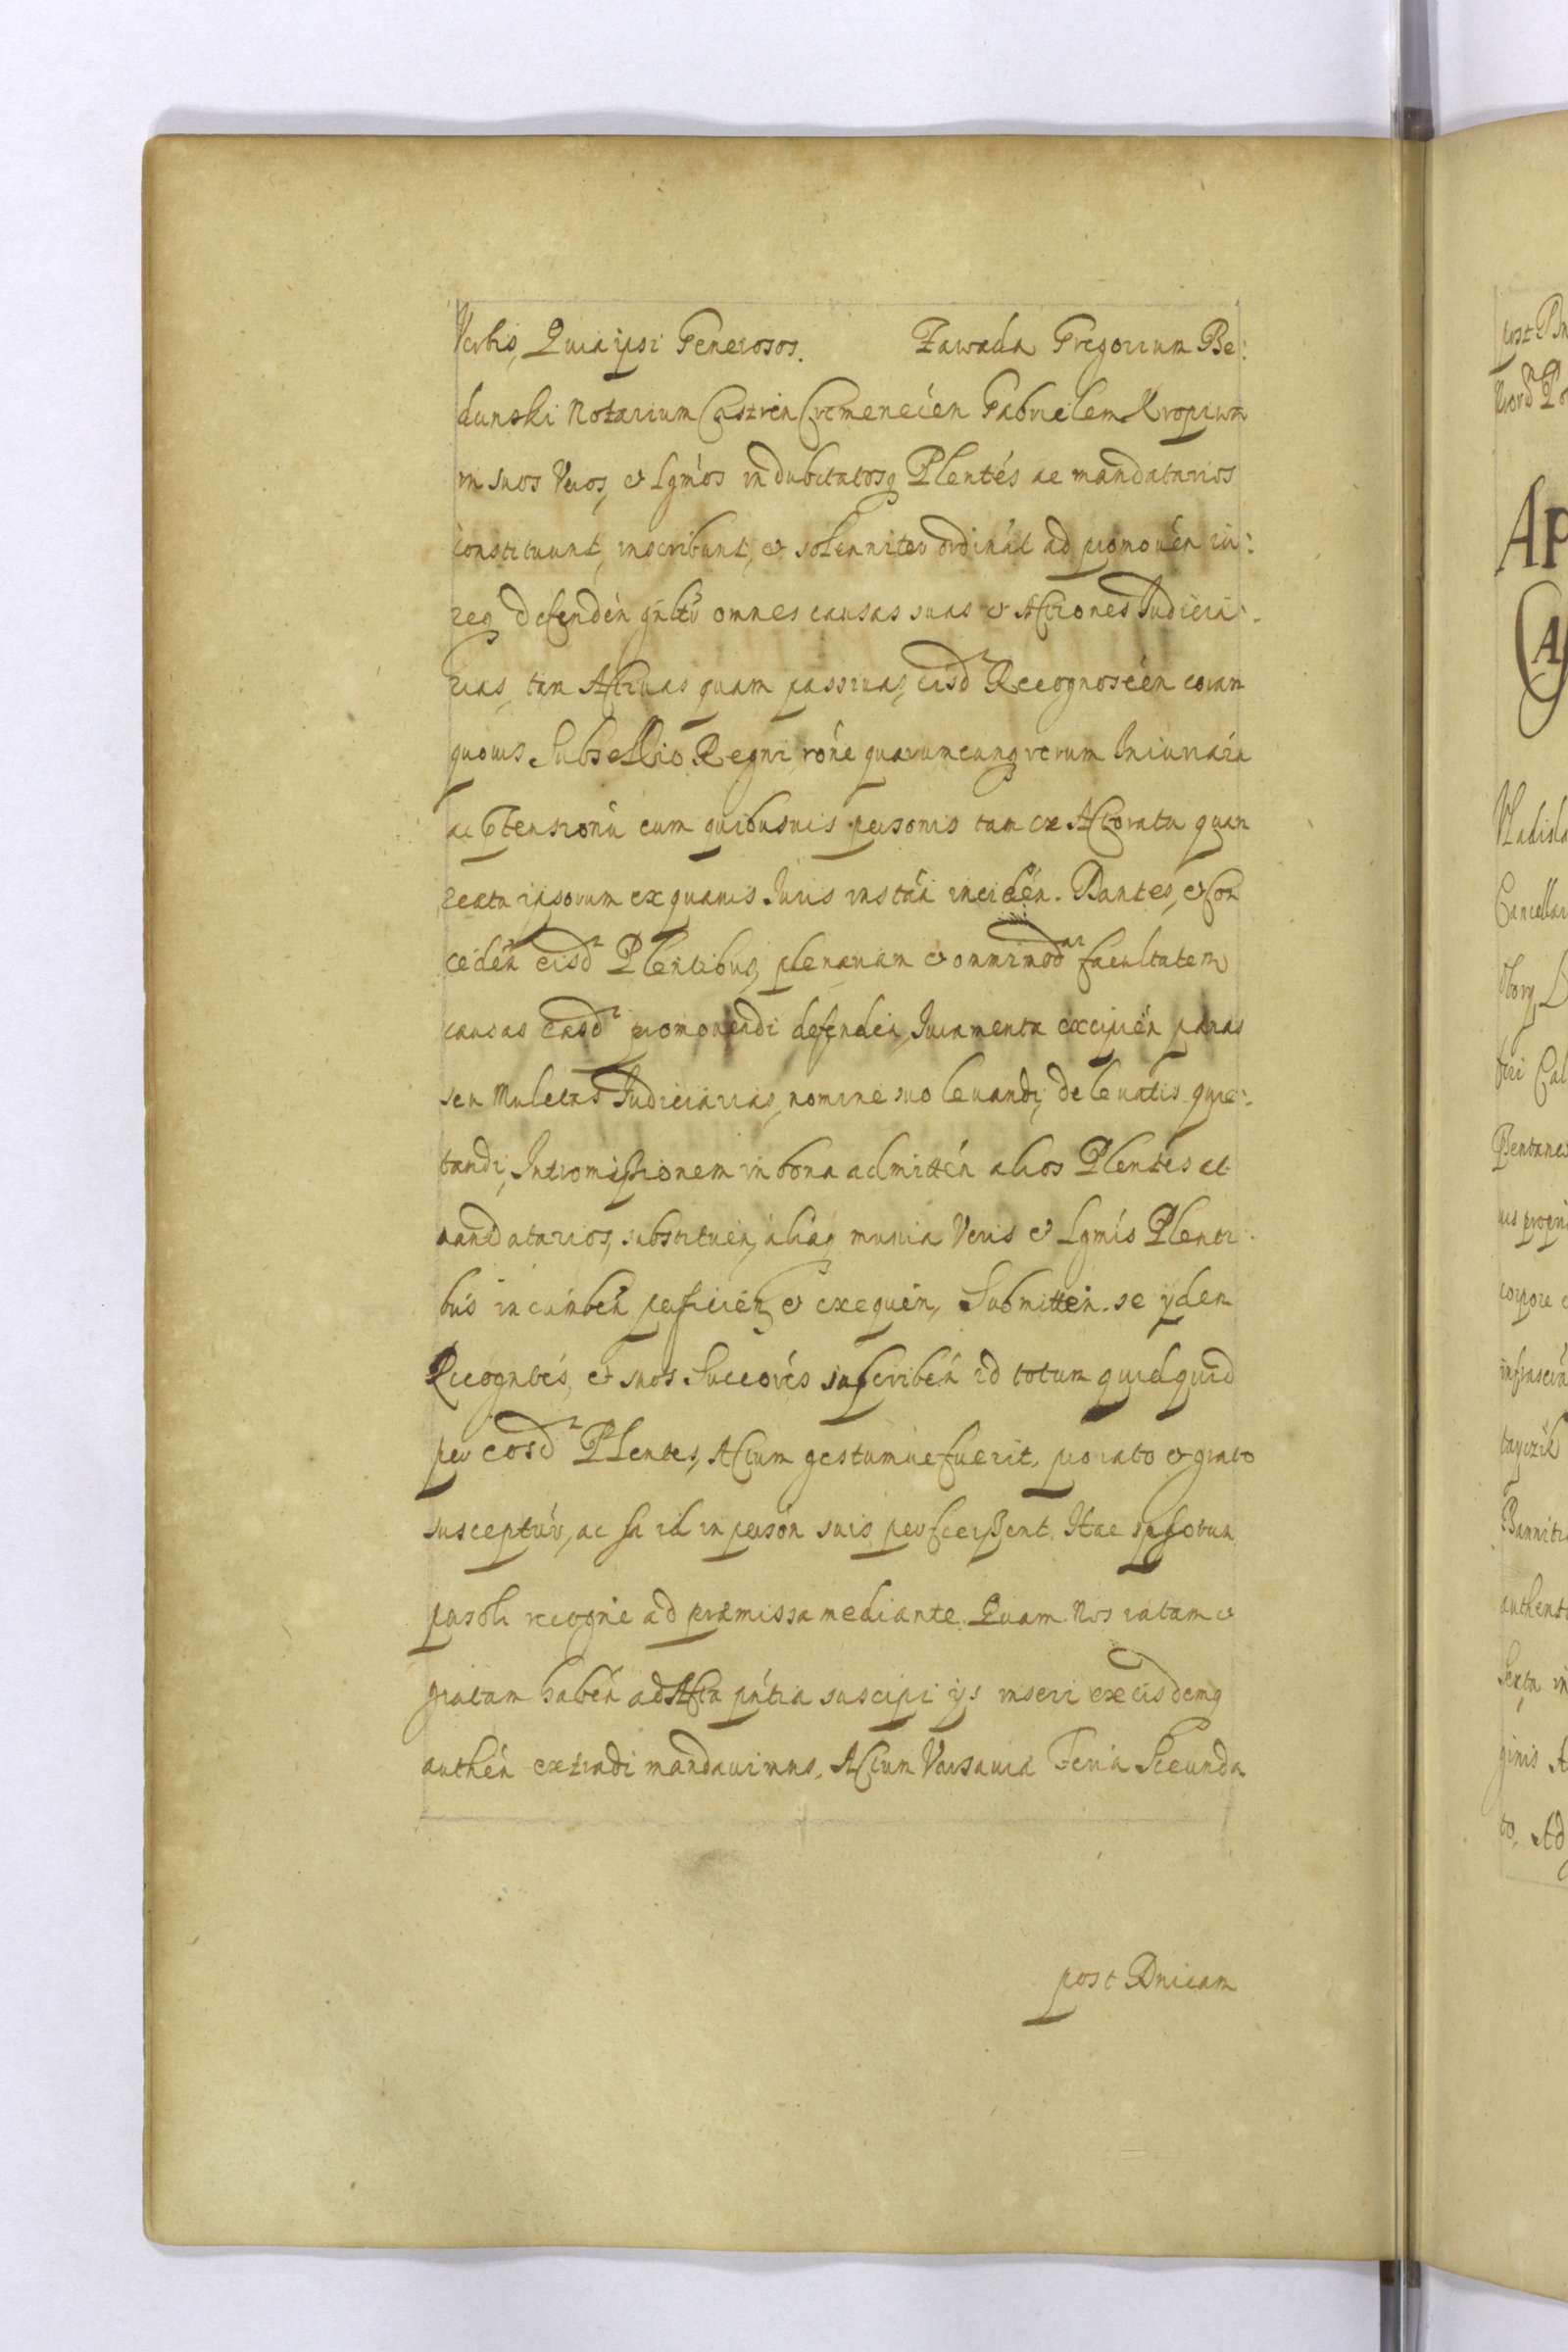 Verbis, Quia ipsi Generosos. Zawada Gregorium Be:
dunski Notarium Castren Cremenecén Gabrielem Kropiwa
in suos Veros, & Lgmós indubitatosq Plentés ac mandatarios
constituunt, inscribunt, & solenniter ordinát ad promovén iu:
req defendén gnltr omnes causas suas & Actiones Judicia:
rias, tam Activas quam passivas, eisd Recognoscén coram
quovis Subsellio Regni róne quarumcunq rerum Iniuriarú
ac Ptensionú cum quibusvis personis tam ex Actoratu quam
reatu ipsorum ex quavis Juris instán inciden. Dantes, & Con
ceden eisd Plentibus, plenariam & omnimod facultatem
causas easd promovendi defenden, Juramenta excipién pænas
seu Mulctas Judiciarias, nomine suo levandi, de levatis quie:
tandi, Intromissionem in bona admittén alios Plentes et
mandatarios, substituen, aliaq munia Veris & Lgmis Plenti:
bus incumbén perficién, & exequén, Submitten. se ÿdem
Recognbés, & suos Succorés inscribén id totum quidquid
per eosd Plentes, Actum gestumve fuerit, pro rato & grato
susceptúr, ac si id in persón suis perfecissent. Hac ipsorum
pnsoli recogne ad præmissa mediante. Quam Nos ratam &
gratam habén ad Acta pntia suscipi ijs inseri ex eisdemq
authén extradi mandavimus. Actum Varsaviæ Feria Secunda
post Dnicam
post Dn
Kord Po
AP
A
Vladisla
Cancellar
L
firi Cal
Bentanes
us propri
corpore c
infrascrip
Bannitio
authent
Sexta in
ginis A
to, Ad